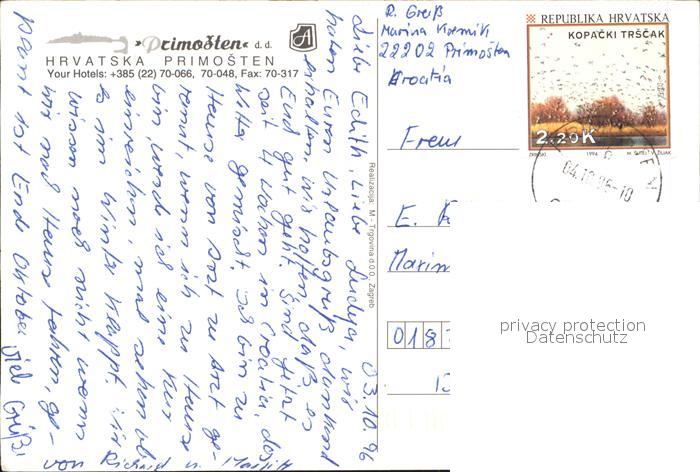 »Primošten« d.d.
HRVATSKA PRIMOŠTEN
Your Hotels: +385 (22) 70-066, 70-048, Fax: 70-317
03.10.96
Liebe Edith, Liebe Ludya, wir
haben Euren Urlaubsgruß dankend
erhalten, wir hoffen, daß es
Euch gut geht. Sind jetzt
seit 4 Wochen in Croatia, das
Wetter gemischt. Ich bin zu
Hause von Arzt zu Arzt ge-
rannt, wenn ich zu Hause
bin, werd ich eine Kur
einreichen, mal sehen ob
es im Winter klappt. Wir
wissen noch nicht wann
wir nach Hause fahren, ge-
plant ist Ende Oktober. Viele Grüße
von Richard u.
Realizacija: M - Trgovina d.o.o., Zagreb
R. Greiß
Marina Kremik
22202 Primošten
Kroatia
REPUBLIKA HRVATSKA
KOPAČKI TRŠČAK
2.20K
1994
04.10.96-10
Freu
E.
Marin
018
privacy protection
Datenschutz